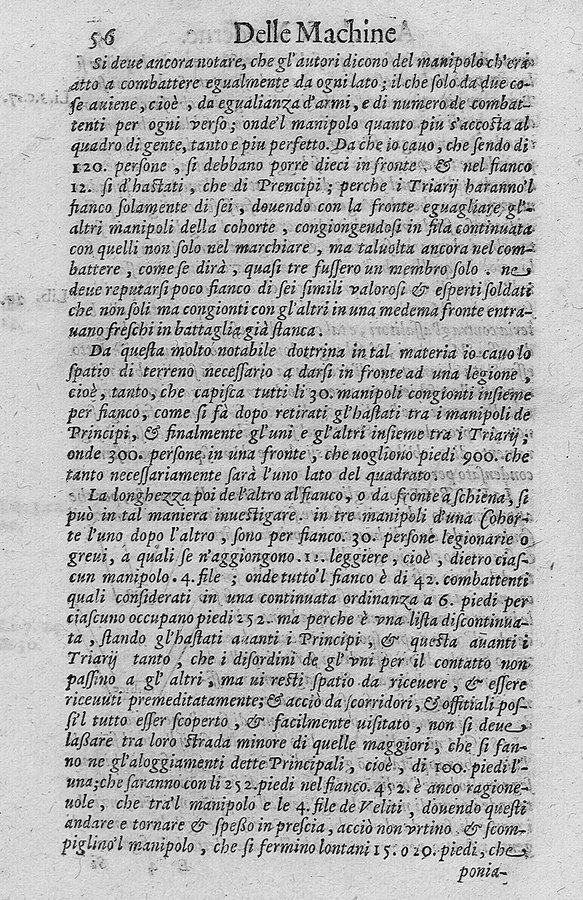 56 Delle Machine
Si deve ancora notare, che gl'autori dicono del manipolo ch'era
atto a combattere egualmente da ogni lato; il che solo da due co-
se aviene, cioè, da egualianza d'armi, e di numero de combat-
tenti per ogni verso; onde'l manipolo quanto piu s'accosta al
quadro di gente, tanto e piu perfetto. Da che io cavo, che sendo di
120. persone, si debbano porre dieci in fronte. & nel fianco
12. sì d'hastati, che di Prencipi; perche i Triarij haranno'l
fianco solamente di sei, dovendo con la fronte eguagliare gl'-
altri manipoli della cohorte, congiongendosi in fila continuata
con quelli non solo nel marchiare, ma taluolta ancora nel com-
battere, come se dirà, quasi tre fussero un membro solo. ne
deve reputarsi poco fianco di sei simili valorosi & esperti soldati
che non soli ma congionti con gl'altri in una medema fronte entra-
vano freschi in battaglia già stanca.
Da questa molto notabile dottrina in tal materia io cavo lo
spatio di terreno necessario a darsi in fronte ad una legione,
cioè, tanto, che capisca tutti li 30. manipoli congionti insieme
per fianco, come si fà dopo retirati gl'hastati tra i manipoli de
Principi, & finalmente gl'uni e gl'altri insieme tra i Triarij;
onde 300. persone in una fronte, che vogliono piedi 900. che
tanto necessariamente sarà l'uno lato del quadrato.
La longhezza poi de l'altro al fianco, o da fronte a schiena, si
può in tal maniera investigare. in tre manipoli d'una Cohor-
te l'uno dopo l'altro, sono per fianco. 30. persone legionarie o
grevi, a quali se n'aggiongono. 12. leggiere, cioè, dietro cias-
cun manipolo. 4. file; onde tutto'l fianco è di 42. combattenti
quali considerati in una continuata ordinanza a 6. piedi per
ciascuno occupano piedi 252. ma perche è vna lista discontinua-
ta, stando gl'hastati avanti i Principi, & questa avanti i
Triarij tanto, che i disordini de gl'vni per il contatto non
passino a gl'altri, ma vi resti spatio da ricevere, & essere
ricevuti premeditatamente; & acciò da scorridori, & offitiali pos-
s'el tutto esser scoperto, & facilmente visitato, non si deve
lassare tra loro strada minore di quelle maggiori, che si fan-
no ne gl'aloggiamenti dette Principali, cioè, di 100. piedi l'-
una; che saranno con li 252. piedi nel fianco. 452. è anco ragione-
vole, che tra'l manipolo e le 4. file de Veliti, dovendo questi
andare e tornare & spesso in prescia, acciò non vrtino & scom-
piglino'l manipolo, che si fermino lontani 15. o 20. piedi, che
ponia-